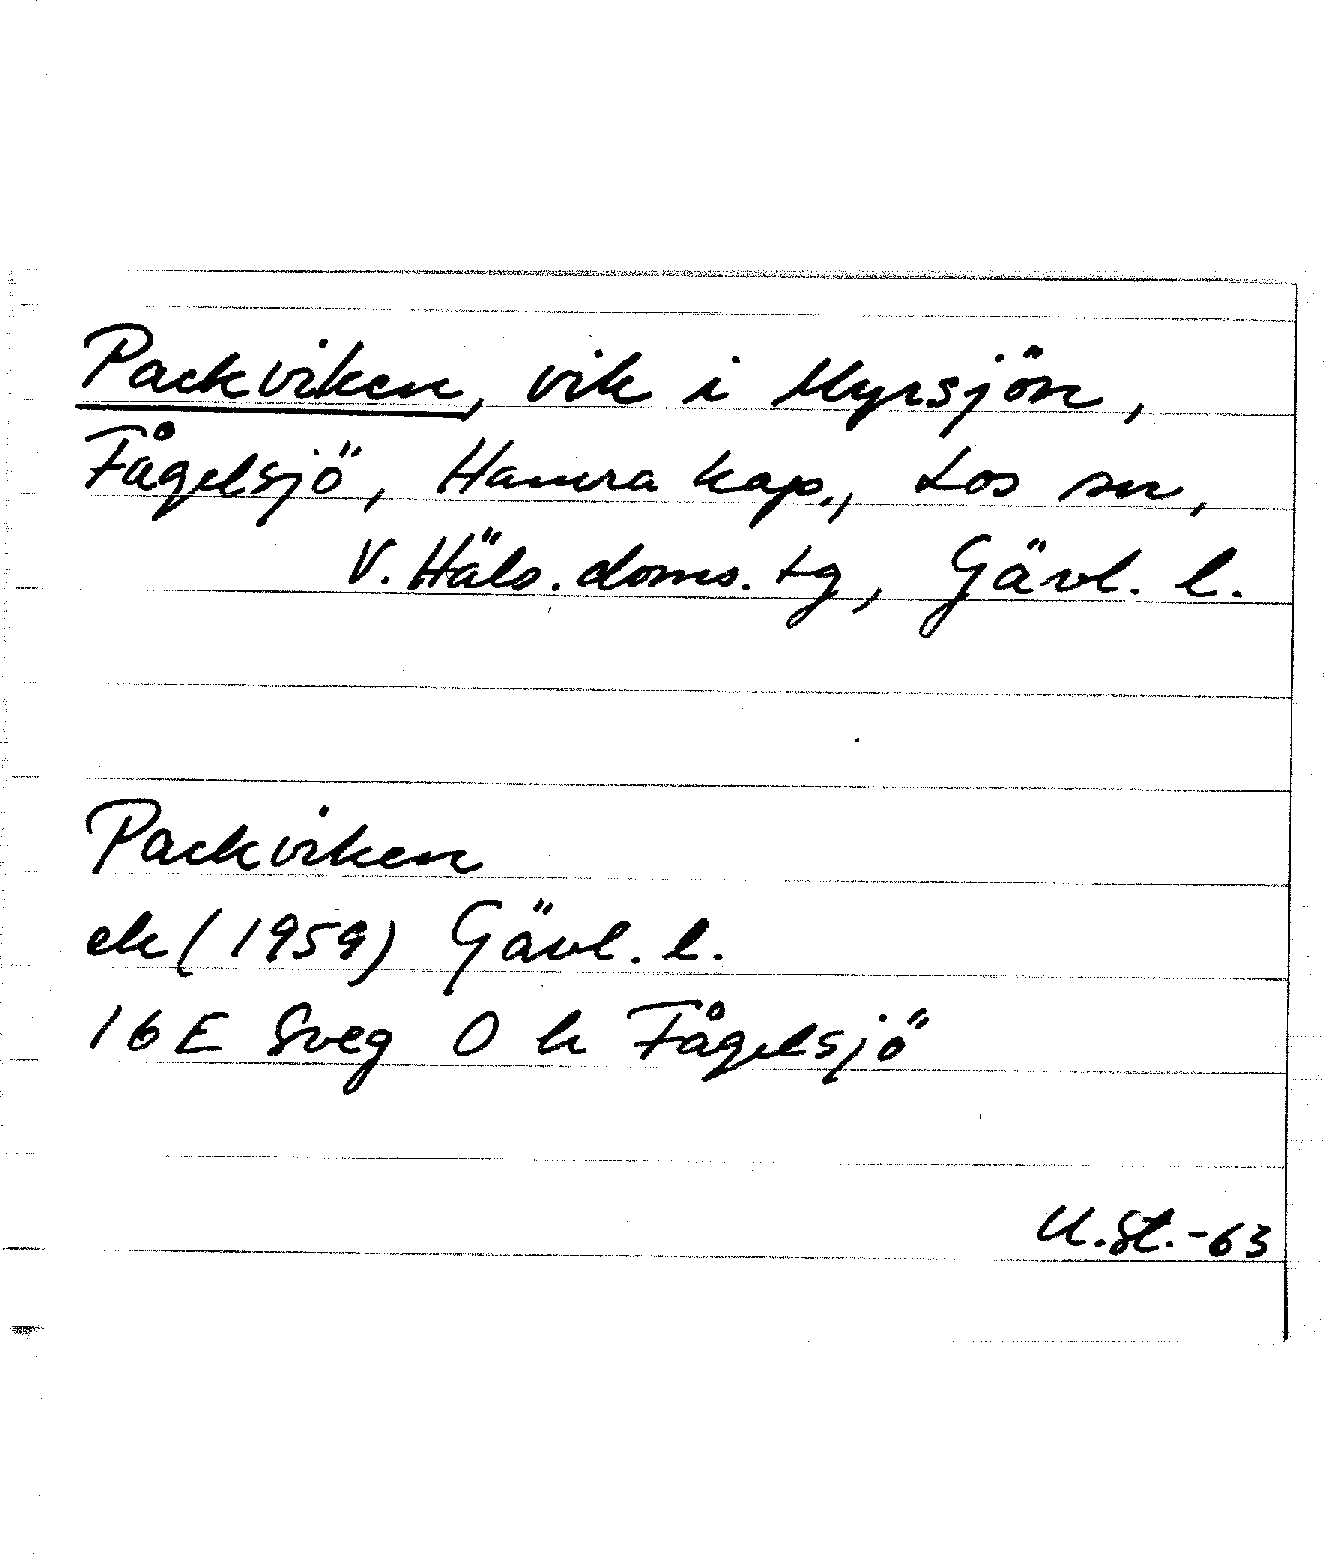 Packviken, vik i Myrsjön,
Fågelsjö, Hamra kap., Los sn,
V. Häls. doms. tg, Gävl. l.
Packviken
ek (1959) Gävl. l.
16 E Sveg O h Fågelsjö
U. St. -63